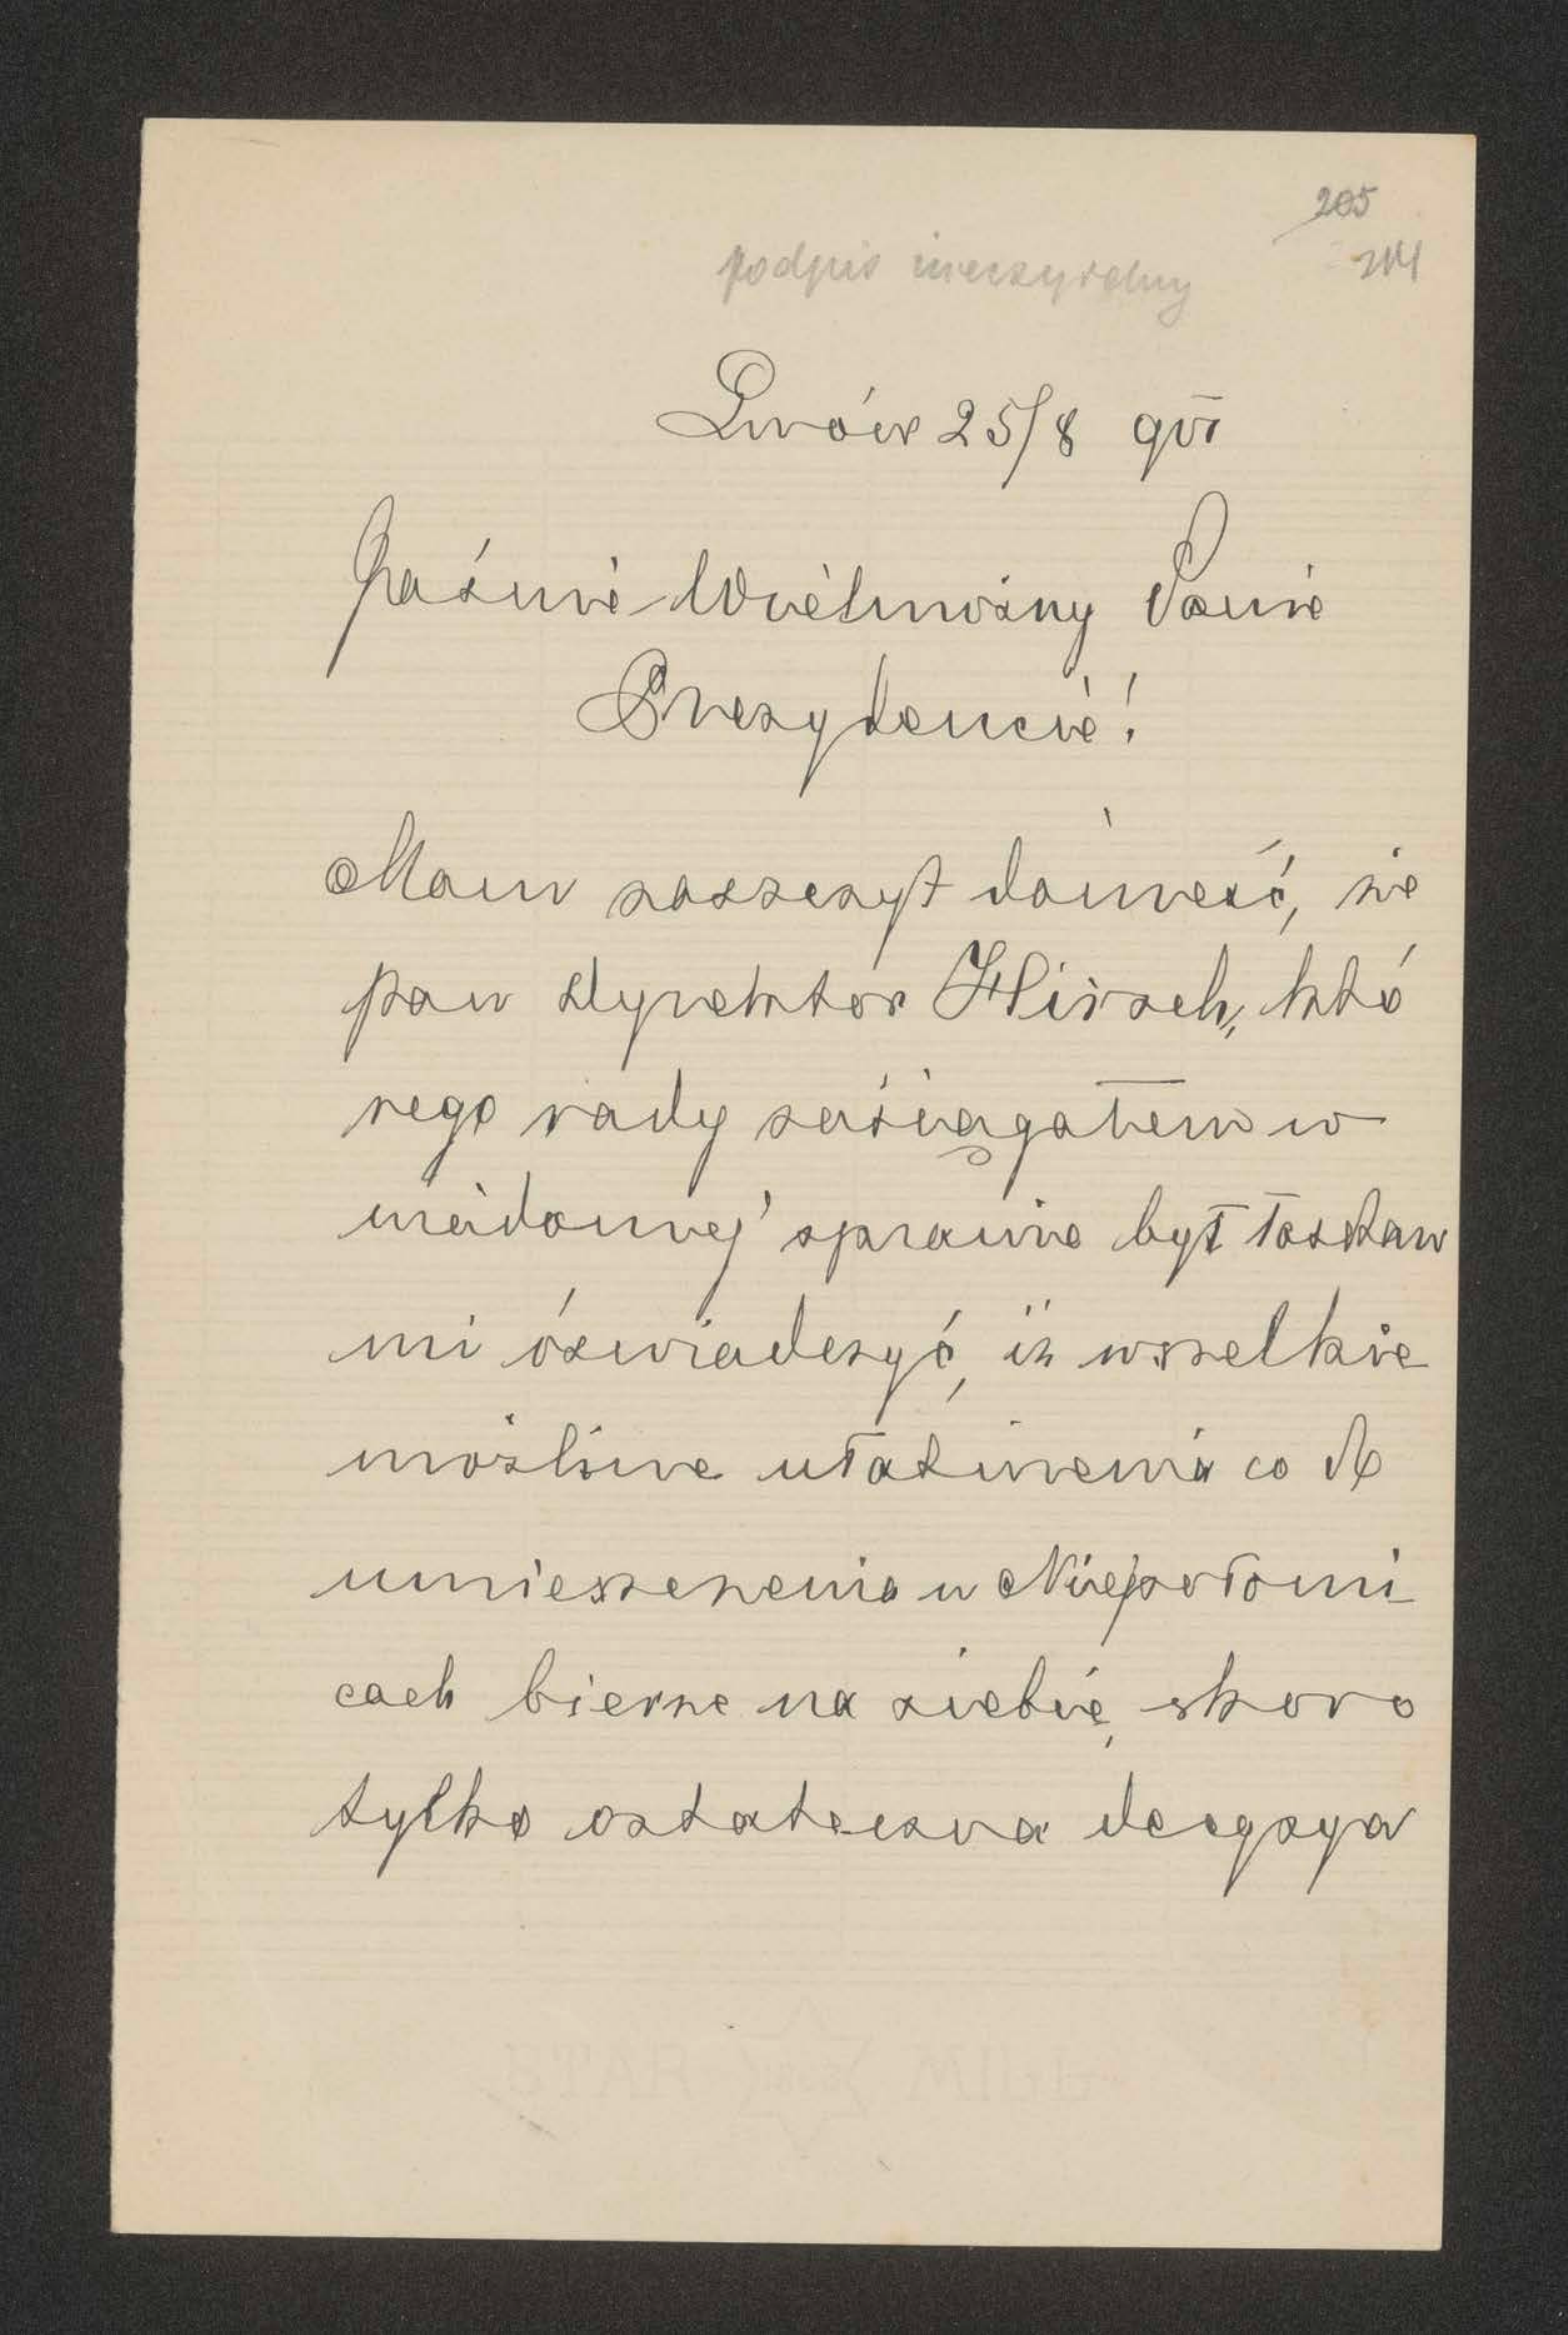 205
204
podpis nieczytelny
Lwów 25/8 901
Jaśnie Wielmożny Panie
Prezydencie!
Mam zaszczyt donieść, że
pan dyrektor Hirsch, któ
rego rady zasiągałem w
wiadomej sprawie był łaskaw
mi óswiadczyć, iż wszelkie
możliwe ułatwienia co do
umieszczenia w Niepołomi
cach bierze na siebie, skoro
tylko ostateczna decyzya